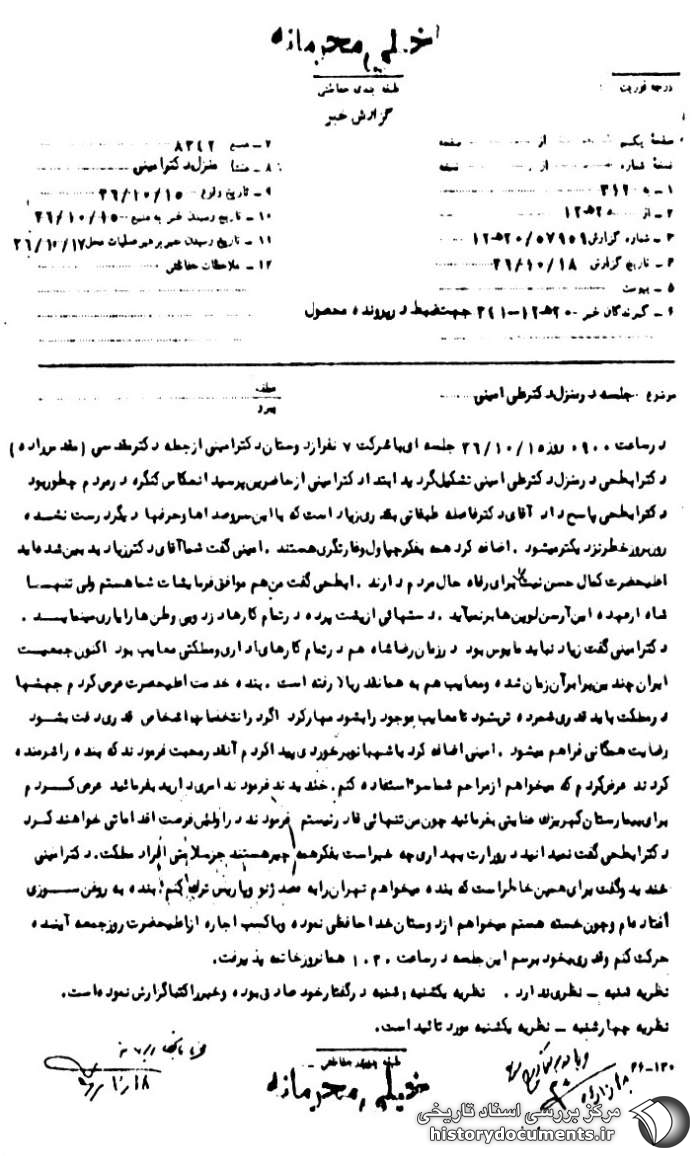 خیلی محرمانه
طبقه بندی حفاظتی
درجه فوریت
گزارش خبر
صفحه یکم از صفحه
نسخه شماره از نسخه
۱ - به ۳۱۲
۲ - از ۲۰ﻫ۱۲
۳ - شماره گزارش ۱۲ﻫ۲۰/۵۷۹۵۹
۴ - تاریخ گزارش ۳۶/۱۰/۱۸
۵ - پیوست
۶ - گیرندگان خبر ۲۰ﻫ۱۲-۳۴۱ جهت ضبط در پرونده محصول
۷ - منبع ۸۲۴۲
۸ - منشا منزل دکتر امینی
۹ - تاریخ وقوع ۳۶/۱۰/۱۵
۱۰ - تاریخ رسیدن خبر به منبع ۳۶/۱۰/۱۵
۱۱ - تاریخ رسیدن خبر به رهبر عملیات محل ۳۶/۱۰/۱۷
۱۲ - ملاحظات حفاظتی
موضوع جلسه در منزل دکتر علی امینی
عطف
پیرو
در ساعت ۰۹۰۰ روز ۳۶/۱۰/۱۵ جلسه ای با شرکت ۷ نفر از دوستان دکتر امینی از جمله دکتر مقدسی (مقدس زاده)
دکتر ابطحی در منزل دکتر علی امینی تشکیل گردید ابتدا دکتر امینی از حاضرین پرسید انعکاس کنگره در مردم چطور بود
دکتر ابطحی پاسخ داد آقای دکتر فاصله طبقاتی بقدری زیاد است که با این سروصداها و حرفها دیگر درست نشده
روز بروز خطر نزدیکتر میشود . اضافه کرد همه بفکر چپاول و غارتگری هستند . امینی گفت شما آقای دکتر زیاد بدبین شده اید
اعلیحضرت کمال حسن نیت برای رفاه حال مردم دارند . ابطحی گفت من هم موافق فرمایشات شما هستم ولی تنها
شاه از عهده این آرسن لوپن ها بر نمیآید . دستهائی از پشت پرده در تمام کارها دزد و بی وطن ها را یاری مینماید .
دکتر امینی گفت زیاد نباید مایوس بود در زمان رضا شاه هم در تمام کارهای اداری و مملکتی معایب بود اکنون جمعیت
ایران چندین برابر آن زمان شده و معایب هم به همانقدر بالا رفته است . بنده خدمت اعلیحضرت عرض کردم جهشها
در مملکت باید قدری شمرده تر بشود تا معایب موجود را بشود مهار کرد اگر در انتخاب اشخاص قدری دقت بشود
رضایت همگانی فراهم میشود . امینی اضافه کرد با شهبانو برخوردی پیدا کردم آنقدر محبت فرمودند که بنده را شرمنده
کردند عرض کردم که میخواهم از مراحم شما سوء استفاده کنم . خندیدند فرمودند امری دارید بفرمائید عرض کردم
برای بیمارستان کهریزک عنایتی بفرمائید چون من تنهائی قادر نیستم فرمودند در اولین فرصت اقداماتی خواهند کرد
دکتر ابطحی گفت نمیدانید در وزارت بهداری چه خبر است بفکر همه چیز هستند جز سلامتی افراد مملکت . دکتر امینی
خندید و گفت برای همین خاطر است که بنده میخواهم تهران را به مقصد ژنو و پاریس ترک کنم بنده به روغن سوزی
افتاده ام و چون خسته هستم میخواهم از دوستان خداحافظی نموده و با کسب اجازه از اعلیحضرت روز جمعه آینده
حرکت کنم و قدری بخود برسم این جلسه در ساعت ۱۰۳۰ همانروز خاتمه پذیرفت.
نظریه شنبه - نظری ندارد . نظریه یکشنبه : شنبه در گفتار خود صادق بوده و خبر را کتبا گزارش نموده است.
نظریه چهارشنبه - نظریه یکشنبه مورد تائید است.
۳۶-۱۳۰
طبقه بندی حفاظتی
خیلی محرمانه
مرکز بررسی اسناد تاریخی
historydocuments.ir